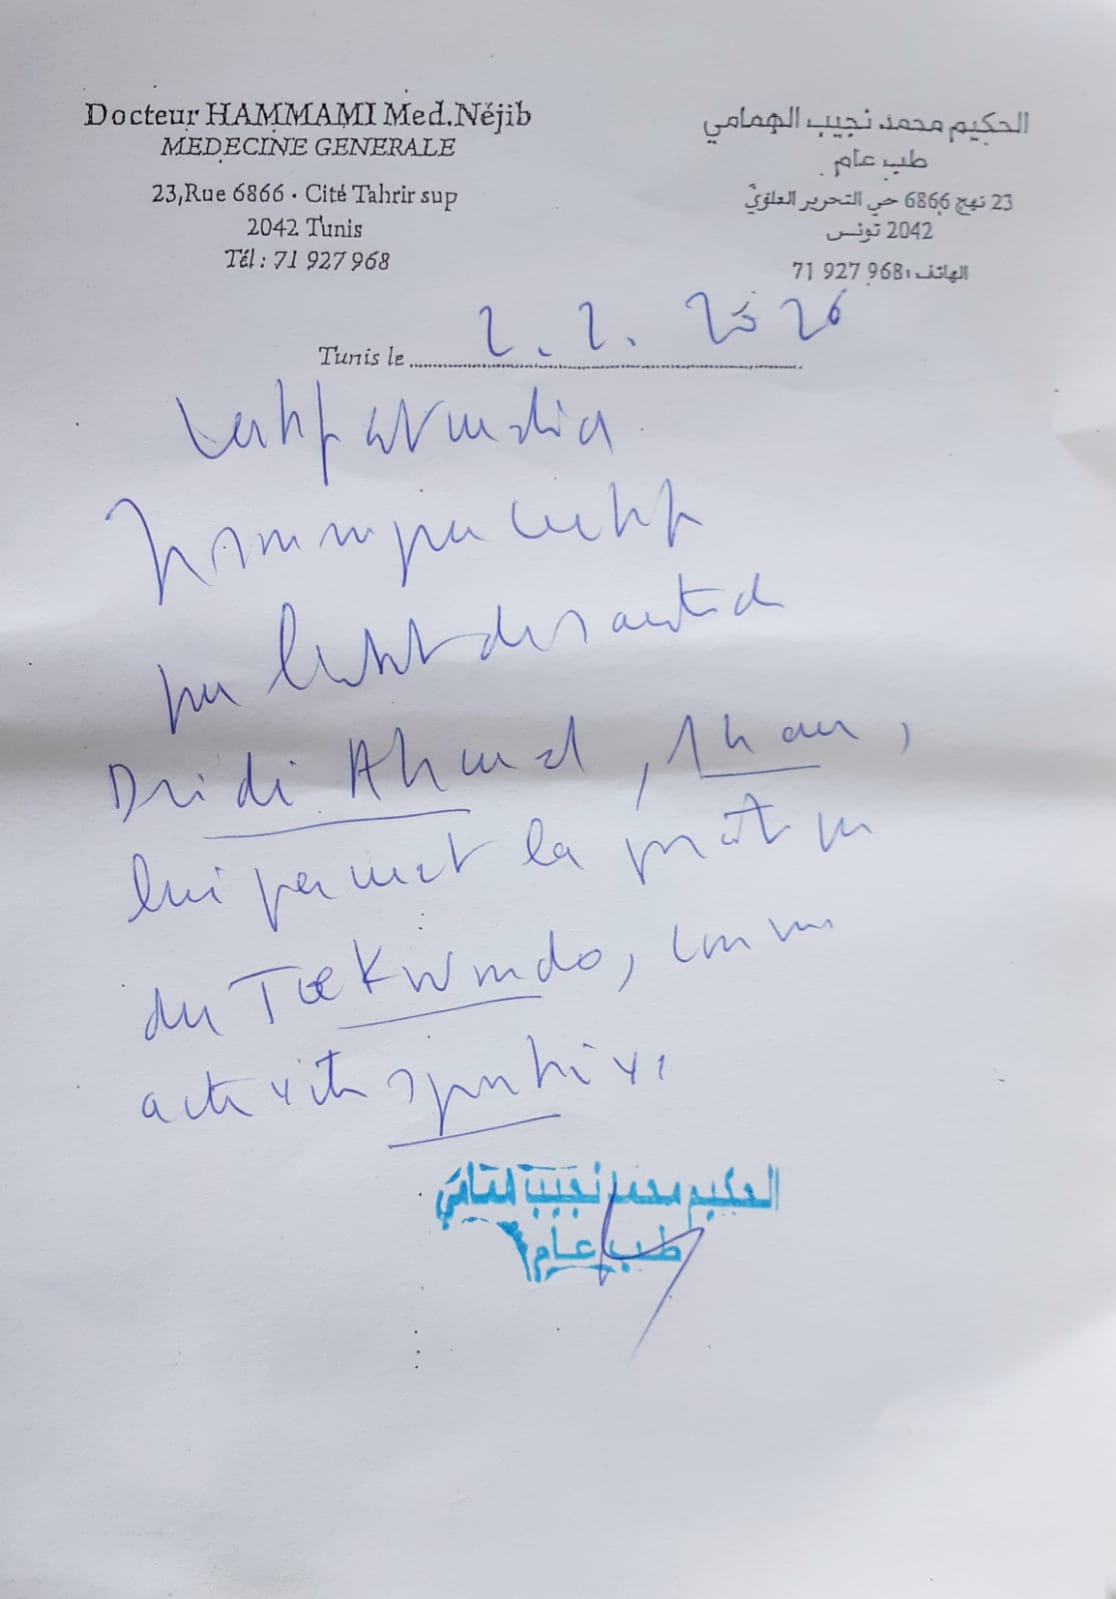 Docteur HAMMAMI Med.Néjib
MEDECINE GENERALE
23,Rue 6866 · Cité Tahrir sup
2042 Tunis
Tél : 71 927 968
الحكيم محمد نجيب الهمامي
طب عام
23 نهج 6866 حي التحرير العلوي
2042 تونس
الهاتف : 71 927 968
Tunis le 2.2.2026
Certificat médical
certifie
que l'état de santé de
Dridi Ahmed,
lui permet la pratique
du Taekwondo, comme
activité sportive.
الحكيم محمد نجيب همامي
طب عام